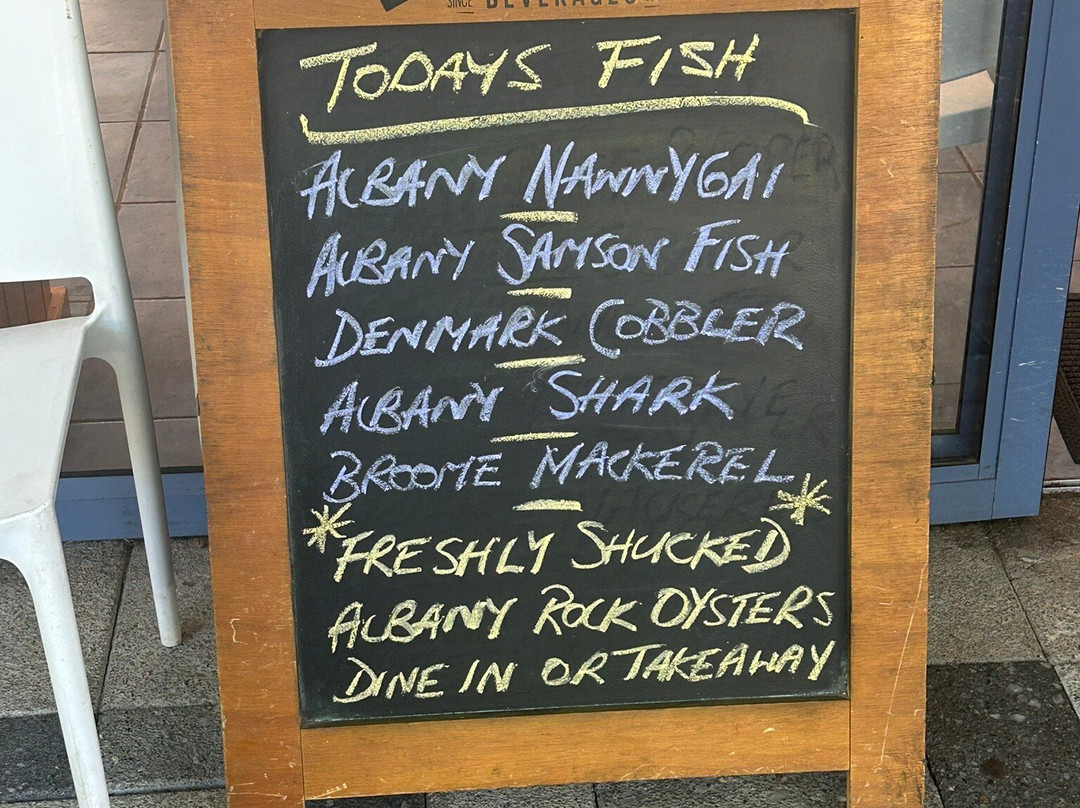 SINCE BEVERAGES
TODAYS FISH
ALBANY NANNYGAI
ALBANY SAMSON FISH
DENMARK COBBLER
ALBANY SHARK
BROOME MACKEREL
* FRESHLY SHUCKED *
ALBANY ROCK OYSTERS
DINE IN OR TAKEAWAY